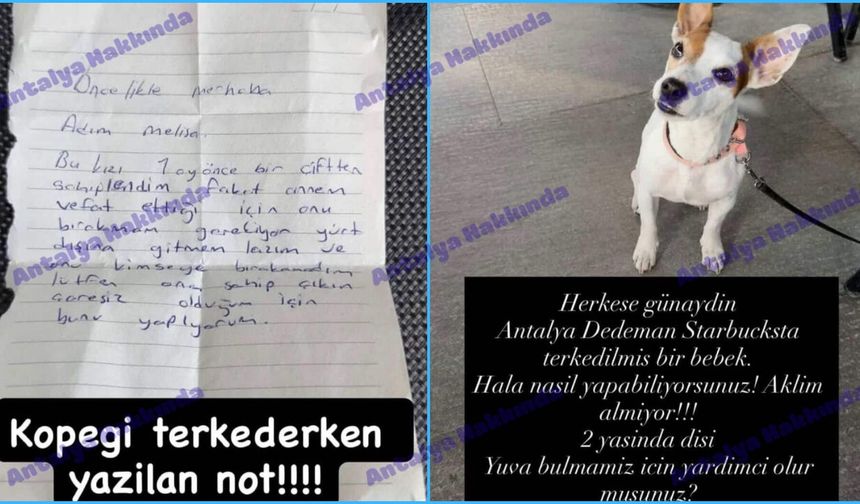 Öncelikle merhaba
Adım Melisa.
Bu kızı 1 ay önce bir çiftten
sahiplendim fakat annem
vefat ettiği için onu
bırakmam gerekiyor yurt
dışına gitmem lazım ve
onu kimseye bırakamadım
lütfen ona sahip çıkın
çaresiz olduğum için
bunu yapıyorum.
Kopegi terkederken
yazilan not!!!!
Herkese günaydin
Antalya Dedeman Starbucksta
terkedilmis bir bebek.
Hala nasil yapabiliyorsunuz! Aklim
almiyor!!!
2 yasinda disi
Yuva bulmamiz icin yardimci olur
musunuz?
Antalya Hakkında
Antalya Hakkında
Antalya Hakkında
Antalya Hakkında
Antalya Hakkında
Antalya Hakkında
Antalya Hakkında
Antalya Hakkında